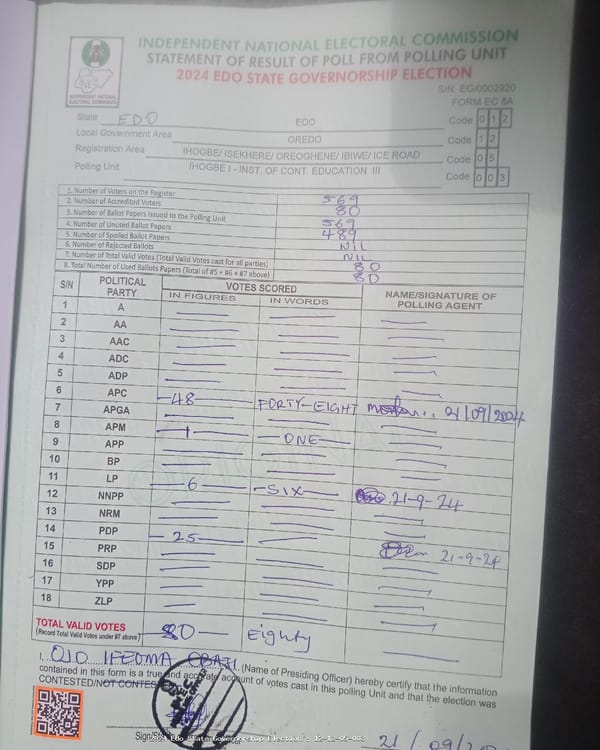 INDEPENDENT NATIONAL ELECTORAL COMMISSION
STATEMENT OF RESULT OF POLL FROM POLLING UNIT
2024 EDO STATE GOVERNORSHIP ELECTION
INDEPENDENT NATIONAL ELECTORAL COMMISSION
S/N. EG/0002920
FORM EC 8A
State EDO EDO Code 0 1 2
Local Government Area OREDO Code 1 2
Registration Area IHOGBE/ ISEKHERE/ OREOGHENE/ IBIWE/ ICE ROAD Code 0 5
Polling Unit IHOGBE I - INST. OF CONT. EDUCATION III Code 0 0 3
1. Number of Voters on the Register 569
2. Number of Accredited Voters 80
3. Number of Ballot Papers Issued to the Polling Unit 569
4. Number of Unused Ballot Papers 489
5. Number of Spoiled Ballot Papers NIL
6. Number of Rejected Ballots NIL
7. Number of Total Valid Votes (Total Valid Votes cast for all parties) 80
8. Total Number of Used Ballots Papers (Total of #5 + #6 + #7 above) 80
S/N POLITICAL PARTY VOTES SCORED NAME/SIGNATURE OF POLLING AGENT
IN FIGURES IN WORDS
1 A
2 AA
3 AAC
4 ADC
5 ADP
6 APC 48 FORTY-EIGHT 21/09/2024
7 APGA
8 APM 1 ONE
9 APP
10 BP
11 LP 6 SIX 21-9-24
12 NNPP
13 NRM
14 PDP 25 21-9-24
15 PRP
16 SDP
17 YPP
18 ZLP
TOTAL VALID VOTES 80 Eighty
(Record Total Valid Votes under #7 above)
I, OJO IFEOMA (Name of Presiding Officer) hereby certify that the information
contained in this form is a true and accurate account of votes cast in this polling Unit and that the election was
CONTESTED/NOT CONTESTED
Edo State Governorship Election
21/09/20